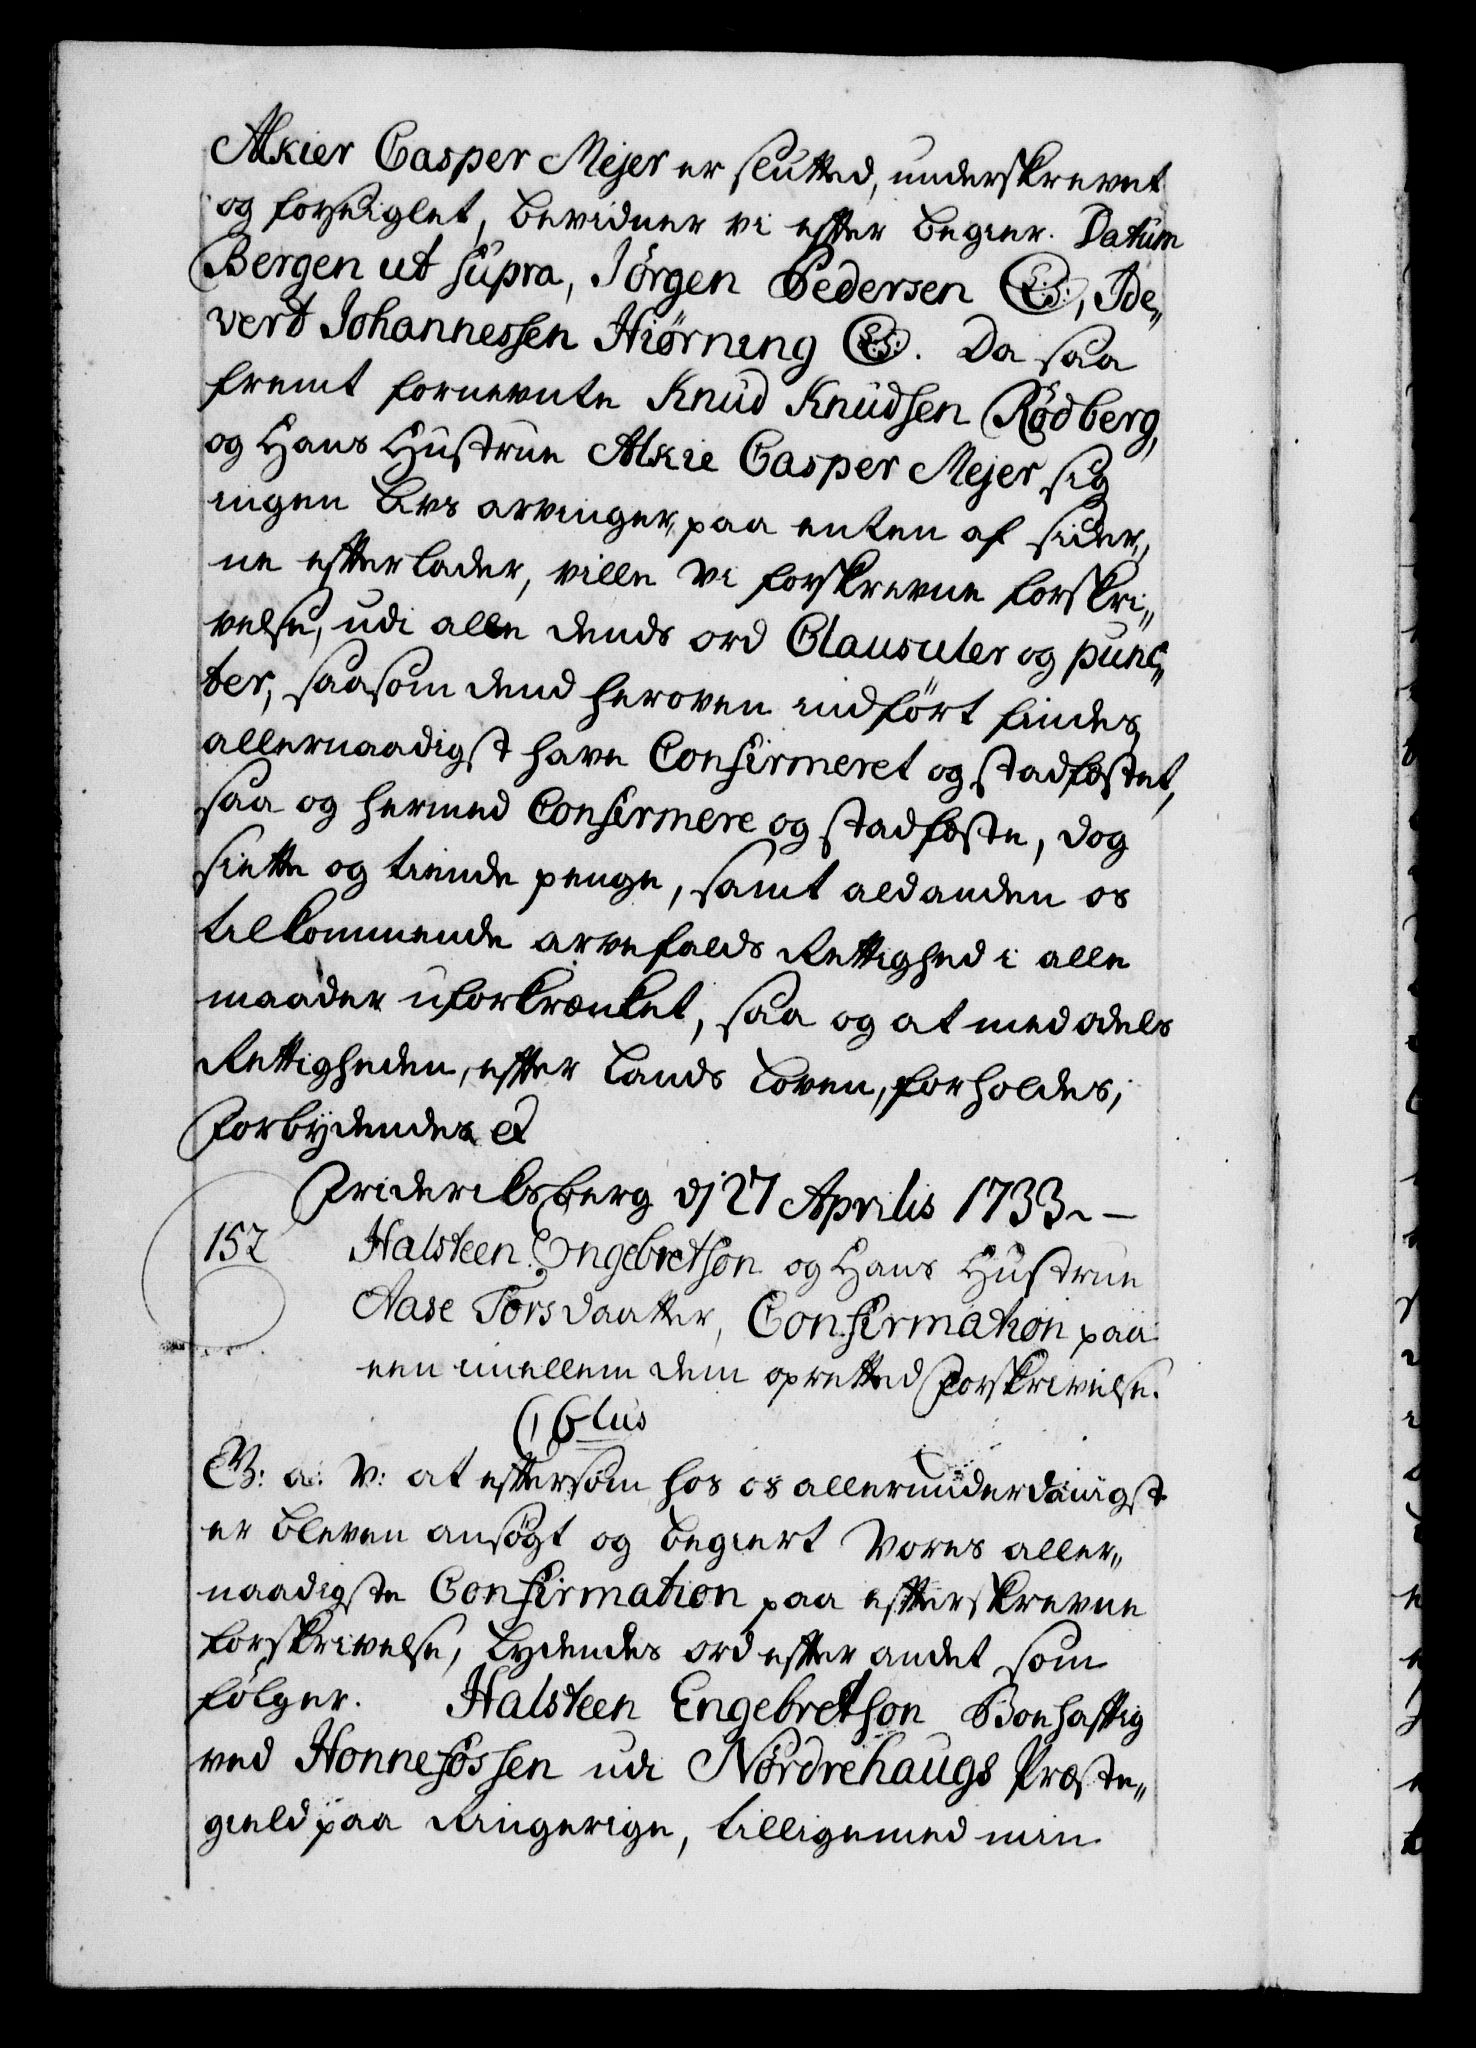 Alkier Casper Mejer er slutted, underskrevet
og forseiglet, bevidner vi efter begier. Datum
Bergen ut supra, Jörgen Pedersen (L:S:), Ide„
vert Johannessen Hiörning (L:S:). Da saa
fremt fornevnte Knud Knudsen Rödberg,
og Hans Hustrue Alkie Casper Mejer sig
ingen Livs arvinger, paa enten af sider„
ne efterlader, ville Vi forskrevne forskri„
velse, udi alle dends ord Clausuler og punc„
ter, saasom dend heroven indfört findes,
allernaadigst have Confirmeret og stadfæstet,
saa og hermed Confirmere og stadfæste, dog
siette og tiende penge, samt ald anden os
tilkommende arvefalds Rettighed i alle
maader uforkrænket, saa og at med odels
Rettigheden, efter Lands Loven, forholdes;
Forbydendes &
Frideriksberg d: 27 Aprilis 1733.
152 Halsteen Engebretson og Hans Hustrue
Aase Torsdaatter, Confirmation paa
een imellem dem opretted Forskrivelse.
C 6tus
G: a: V: at eftersom hos os allerunderdanigst
er bleven ansögt og begiert Vores aller„
naadigste Confirmation paa efterskrevne
forskrivelse, Lydendes ord efter andet som
fölger. Halsteen Engebretson Boehaftig
ved Honnefossen udi Nordrehaugs Præste„
gield paa Ringerige, tilligemed min